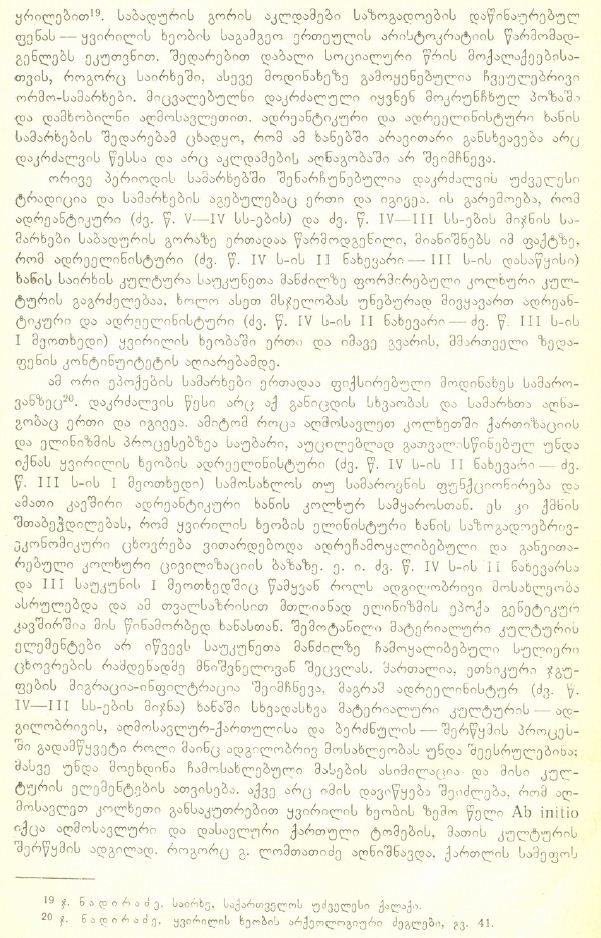 ყრილებით¹⁹. საბადურის გორის აკლდამები საზოგადოების დაწინაურებულ
ფენას — ყვირილის ხეობის საგამგეო ერთეულის არისტოკრატიის წარმომად-
გენლებს ეკუთვნით. შედარებით დაბალი სოციალური წრის მოქალაქეებისა-
თვის, როგორც საირხეში, ასევე მოდინახეზე გამოყენებულია ჩვეულებრივი
ორმო-სამარხები. მიცვალებულნი დაკრძალული იყვნენ მოკრუნჩხულ პოზაში
და დამხობილნი აღმოსავლეთით. ადრეანტიკური და ადრეელინისტური ხანის
სამარხების შედარებამ ცხადყო, რომ ამ ხანებში არავითარი განსხვავება არც
დაკრძალვის წესსა და არც აკლდამების აღნაგობაში არ შეიმჩნევა.
ორივე პერიოდის სამარხებში შენარჩუნებულია დაკრძალვის უძველესი
ტრადიცია და სამარხების აგებულებაც ერთი და იგივეა. ის გარემოება, რომ
ადრეანტიკური (ძვ. წ. V—IV სს-ების) და ძვ. წ. IV—III სს-ების მიჯნის სა-
მარხები საბადურის გორაზე ერთადაა წარმოდგენილი, მიანიშნებს იმ ფაქტზე,
რომ ადრეელინისტური (ძვ. წ. IV ს-ის II ნახევარი — III ს-ის დასაწყისი)
ხანის საირხის კულტურა საუკუნეთა მანძილზე ფორმირებული კოლხური კულ-
ტურის გაგრძელებაა, ხოლო ასეთ მსჯელობას უნებურად მივყავართ ადრეან-
ტიკური და ადრეელინისტური (ძვ. წ. IV ს-ის II ნახევარი — ძვ. წ. III ს-ის
I მეოთხედი) ყვირილის ხეობაში ერთი და იმავე გვარის, მმართველი ზედა-
ფენის კონტინუიტეტის აღიარებამდე.
ამ ორი ეპოქების სამარხები ერთადაა ფიქსირებული მოდინახეს სამარო-
ვანზეც²⁰. დაკრძალვის წესი არც აქ განიცდის სხვაობას და სამარხთა აღნა-
გობაც ერთი და იგივეა. ამიტომ როცა აღმოსავლეთ კოლხეთში ქართიზაციის
და ელინიზმის პროცესებზეა საუბარი, აუცილებლად გათვალისწინებულ უნდა
იქნას ყვირილის ხეობის ადრეელინისტური (ძვ. წ. IV ს-ის II ნახევარი — ძვ.
წ. III ს-ის I მეოთხედი) სამოსახლოს თუ სამაროვნის ფუნქციონირება და
ამათი კავშირი ადრეანტიკური ხანის კოლხურ სამყაროსთან. ეს კი ქმნის
შთაბეჭდილებას, რომ ყვირილის ხეობის ელინისტური ხანის საზოგადოებრივ-
ეკონომიკური ცხოვრება ვითარდებოდა ადრეჩამოყალიბებული და განვითა-
რებული კოლხური ცივილიზაციის ბაზაზე. ე. ი. ძვ. წ. IV ს-ის II ნახევარსა
და III საუკუნის I მეოთხედშიც წამყვან როლს ადგილობრივი მოსახლეობა
ასრულებდა და ამ თვალსაზრისით მთლიანად ელინიზმის ეპოქა გენეტიკურ
კავშირშია მის წინამორბედ ხანასთან. შემოტანილი მატერიალური კულტურის
ელემენტები არ იწვევს საუკუნეთა მანძილზე ჩამოყალიბებული სულიერი
ცხოვრების რამდენადმე მნიშვნელოვან შეცვლას. მართალია, ეთნიკური ჯგუ-
ფების მიგრაცია-ინფილტრაცია შეიმჩნევა, მაგრამ ადრეელინისტურ (ძვ. წ.
IV—III სს-ების მიჯნა) ხანაში სხვადასხვა მატერიალური კულტურის — ად-
გილობრივის, აღმოსავლურ-ქართულისა და ბერძნულის — შერწყმის პროცეს-
ში გადამწყვეტი როლი მაინც ადგილობრივ მოსახლეობას უნდა შეესრულებინა;
მასვე უნდა მოეხდინა ჩამოსახლებული მასების ასიმილაცია და მისი კულ-
ტურის ელემენტების ათვისება. აქვე არც იმის დავიწყება შეიძლება, რომ აღ-
მოსავლეთ კოლხეთი განსაკუთრებით ყვირილის ხეობის ზემო წელი Ab initio
იქცა აღმოსავლური და დასავლური ქართული ტომების, მათის კულტურის
შერწყმის ადგილად. როგორც გ. ლომთათიძე აღნიშნავდა, ქართლის სამეფოს
¹⁹ ჯ. ნადირაძე, საირხე, საქართველოს უძველესი ქალაქი.
²⁰ ჯ. ნადირაძე, ყვირილის ხეობის არქეოლოგიური ძეგლები, გვ. 41.